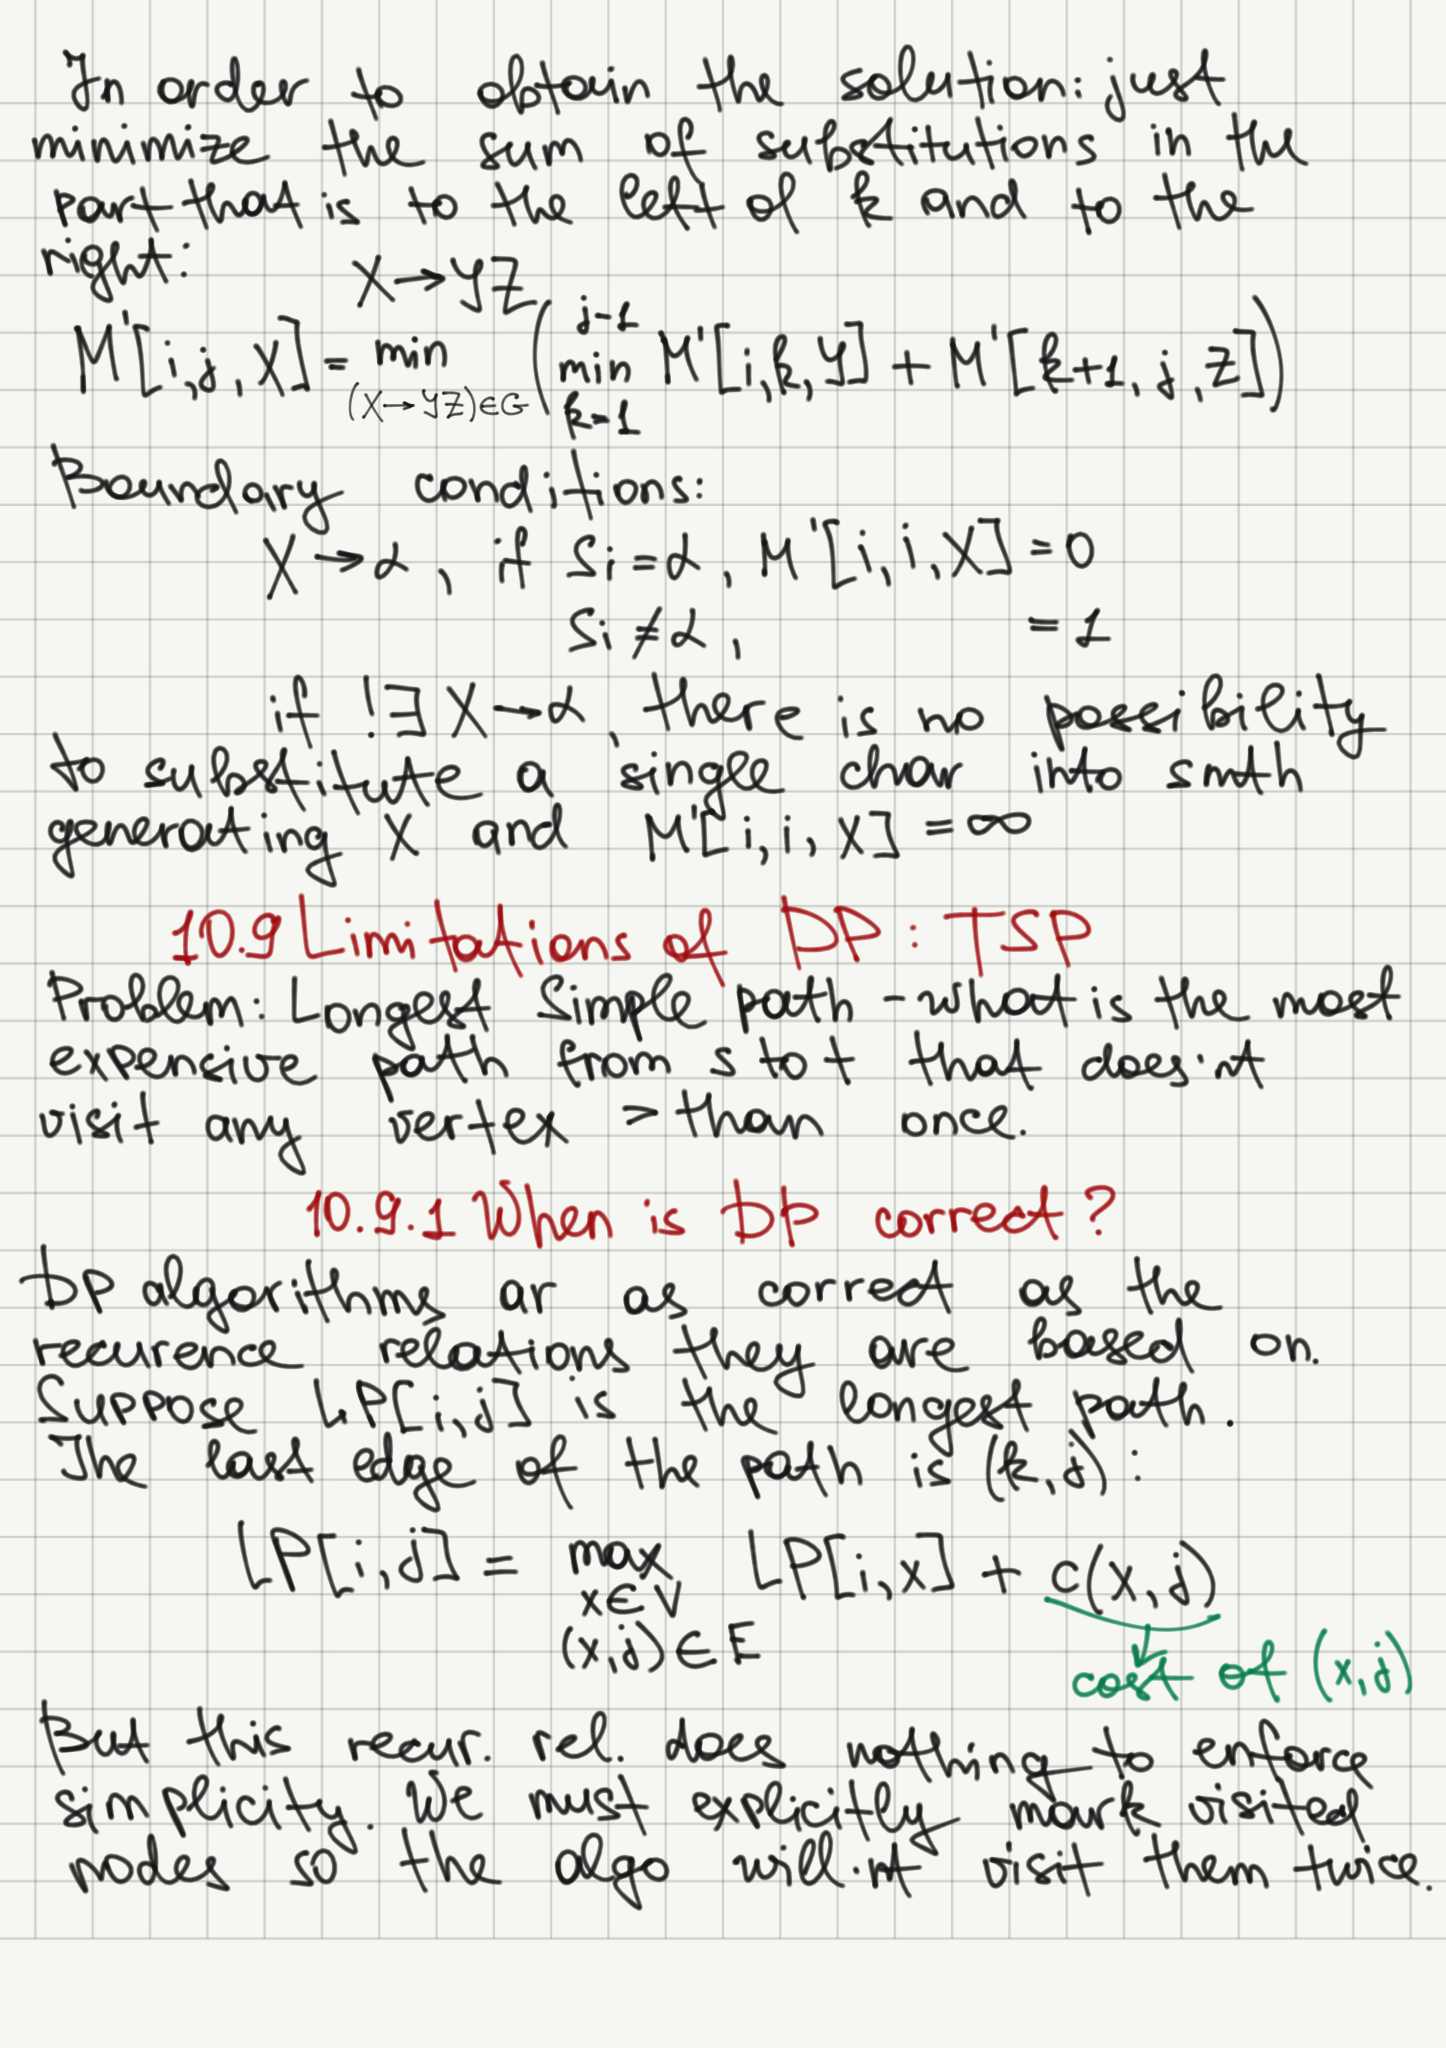 In order to obtain the solution: just
minimize the sum of substitutions in the
part that is to the left of k and to the
right:
X → YZ
M'[i,j,X] = min (X→YZ)∈G ( j-1 min k=1 M'[i,k,Y] + M'[k+1,j,Z] )
Boundary conditions:
X → α, if Si = α, M'[i,i,X] = 0
Si ≠ α, = 1
if !∃ X → α, there is no possibility
to substitute a single char into smth
generating X and M'[i,i,X] = ∞
10.9 Limitations of DP: TSP
Problem: Longest Simple path - what is the most
expensive path from s to t that does'nt
visit any vertex > than once.
10.9.1 When is DP correct?
DP algorithms ar as correct as the
recurence relations they are based on.
Suppose LP[i,j] is the longest path.
The last edge of the path is (k,j):
LP[i,j] = max x∈V (x,j)∈E LP[i,x] + c(x,j)
cost of (x,j)
But this recur. rel. does nothing to enforce
simplicity. We must explicitly mark visited
nodes so the algo will'nt visit them twice.